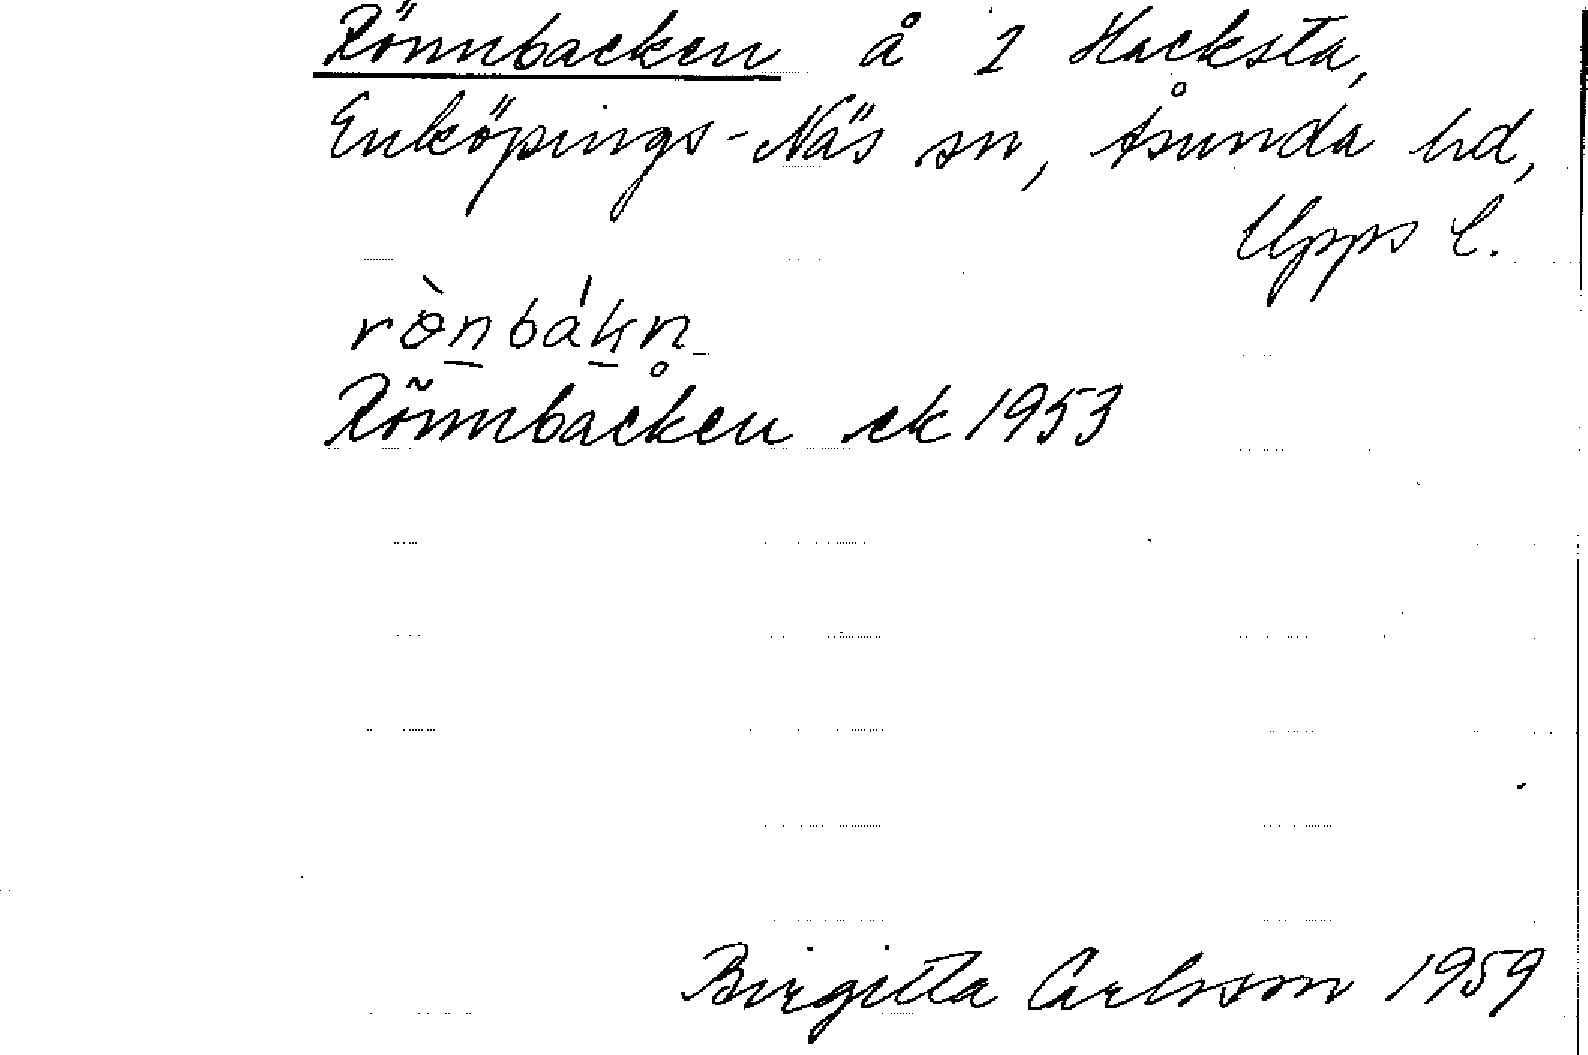 Rönnbacken å 1 Hacksta,
Enköpings-Näs sn, Åsunda hd,
Upps l.
rö̀nbákn̥
Rönnbacken ek 1953
Birgitta Carlsson 1959